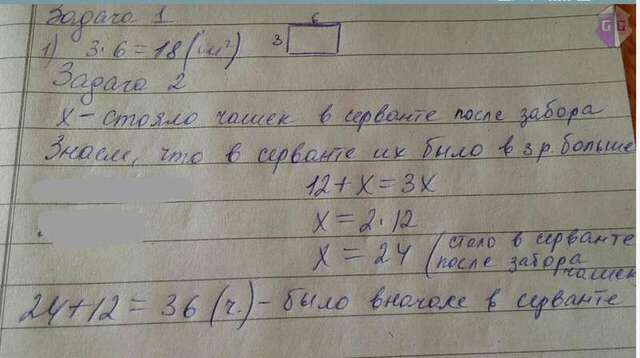 Задача 1
6
1) 3·6=18 (см²) 3
Задача 2
х – стояло чашек в серванте после забора
Знаем, что в серванте их было в 3 р. больше
12+х=3х
х=2·12
х=24 (стало в серванте
после забора
чашек
24+12=36 (ч.) – было вначале в серванте